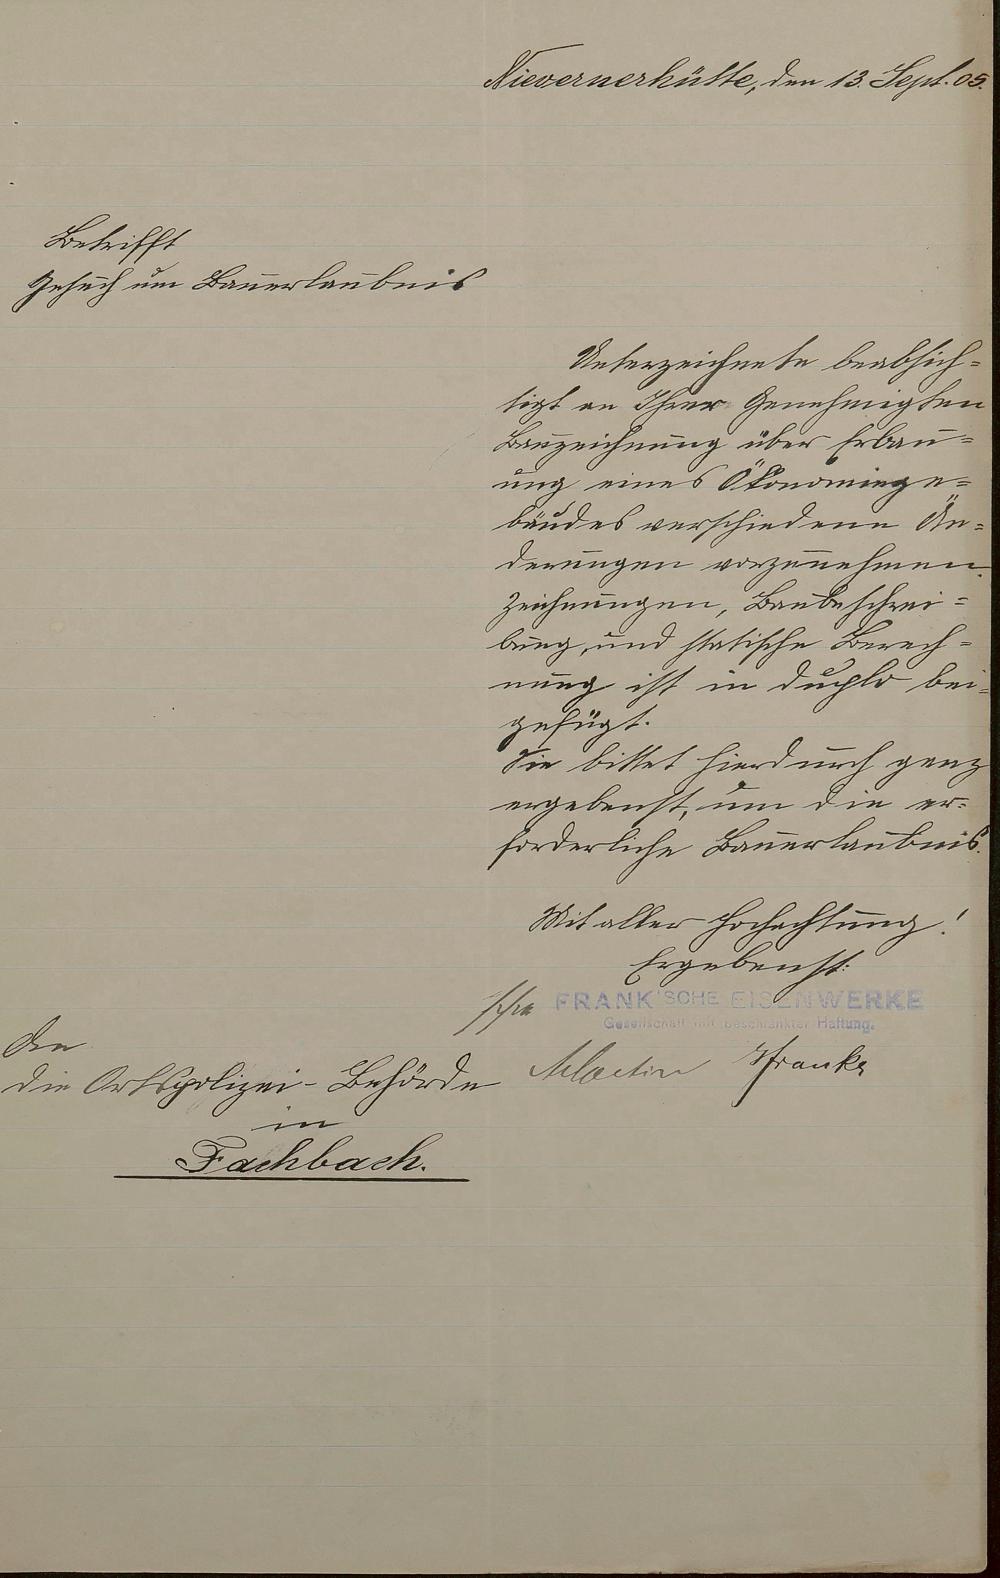 Nievernerhütte, den 13. Sept. 05.
Betrifft
Gesuch um Bauerlaubnis
Unterzeichnete beabsich=
tigt an Ihrer Genehmigten
Bauzeichnung über Erbau=
ung eines Ökonomiege=
bäudes verschiedene Än=
derungen vorzunehmen.
Zeichnungen, Baubeschrei=
bung, und statische Berech=
nung ist in duplo bei=
gefügt.
Sie bittet hierdurch ganz
ergebenst, um die er=
forderliche Bauerlaubnis.
Mit aller Hochachtung!
Ergebenst:
FRANK'SCHE EISENWERKE
Gesellschaft mit beschränkter Haftung.
Franke
An
die Ortspolizei-Behörde
in
Fachbach.